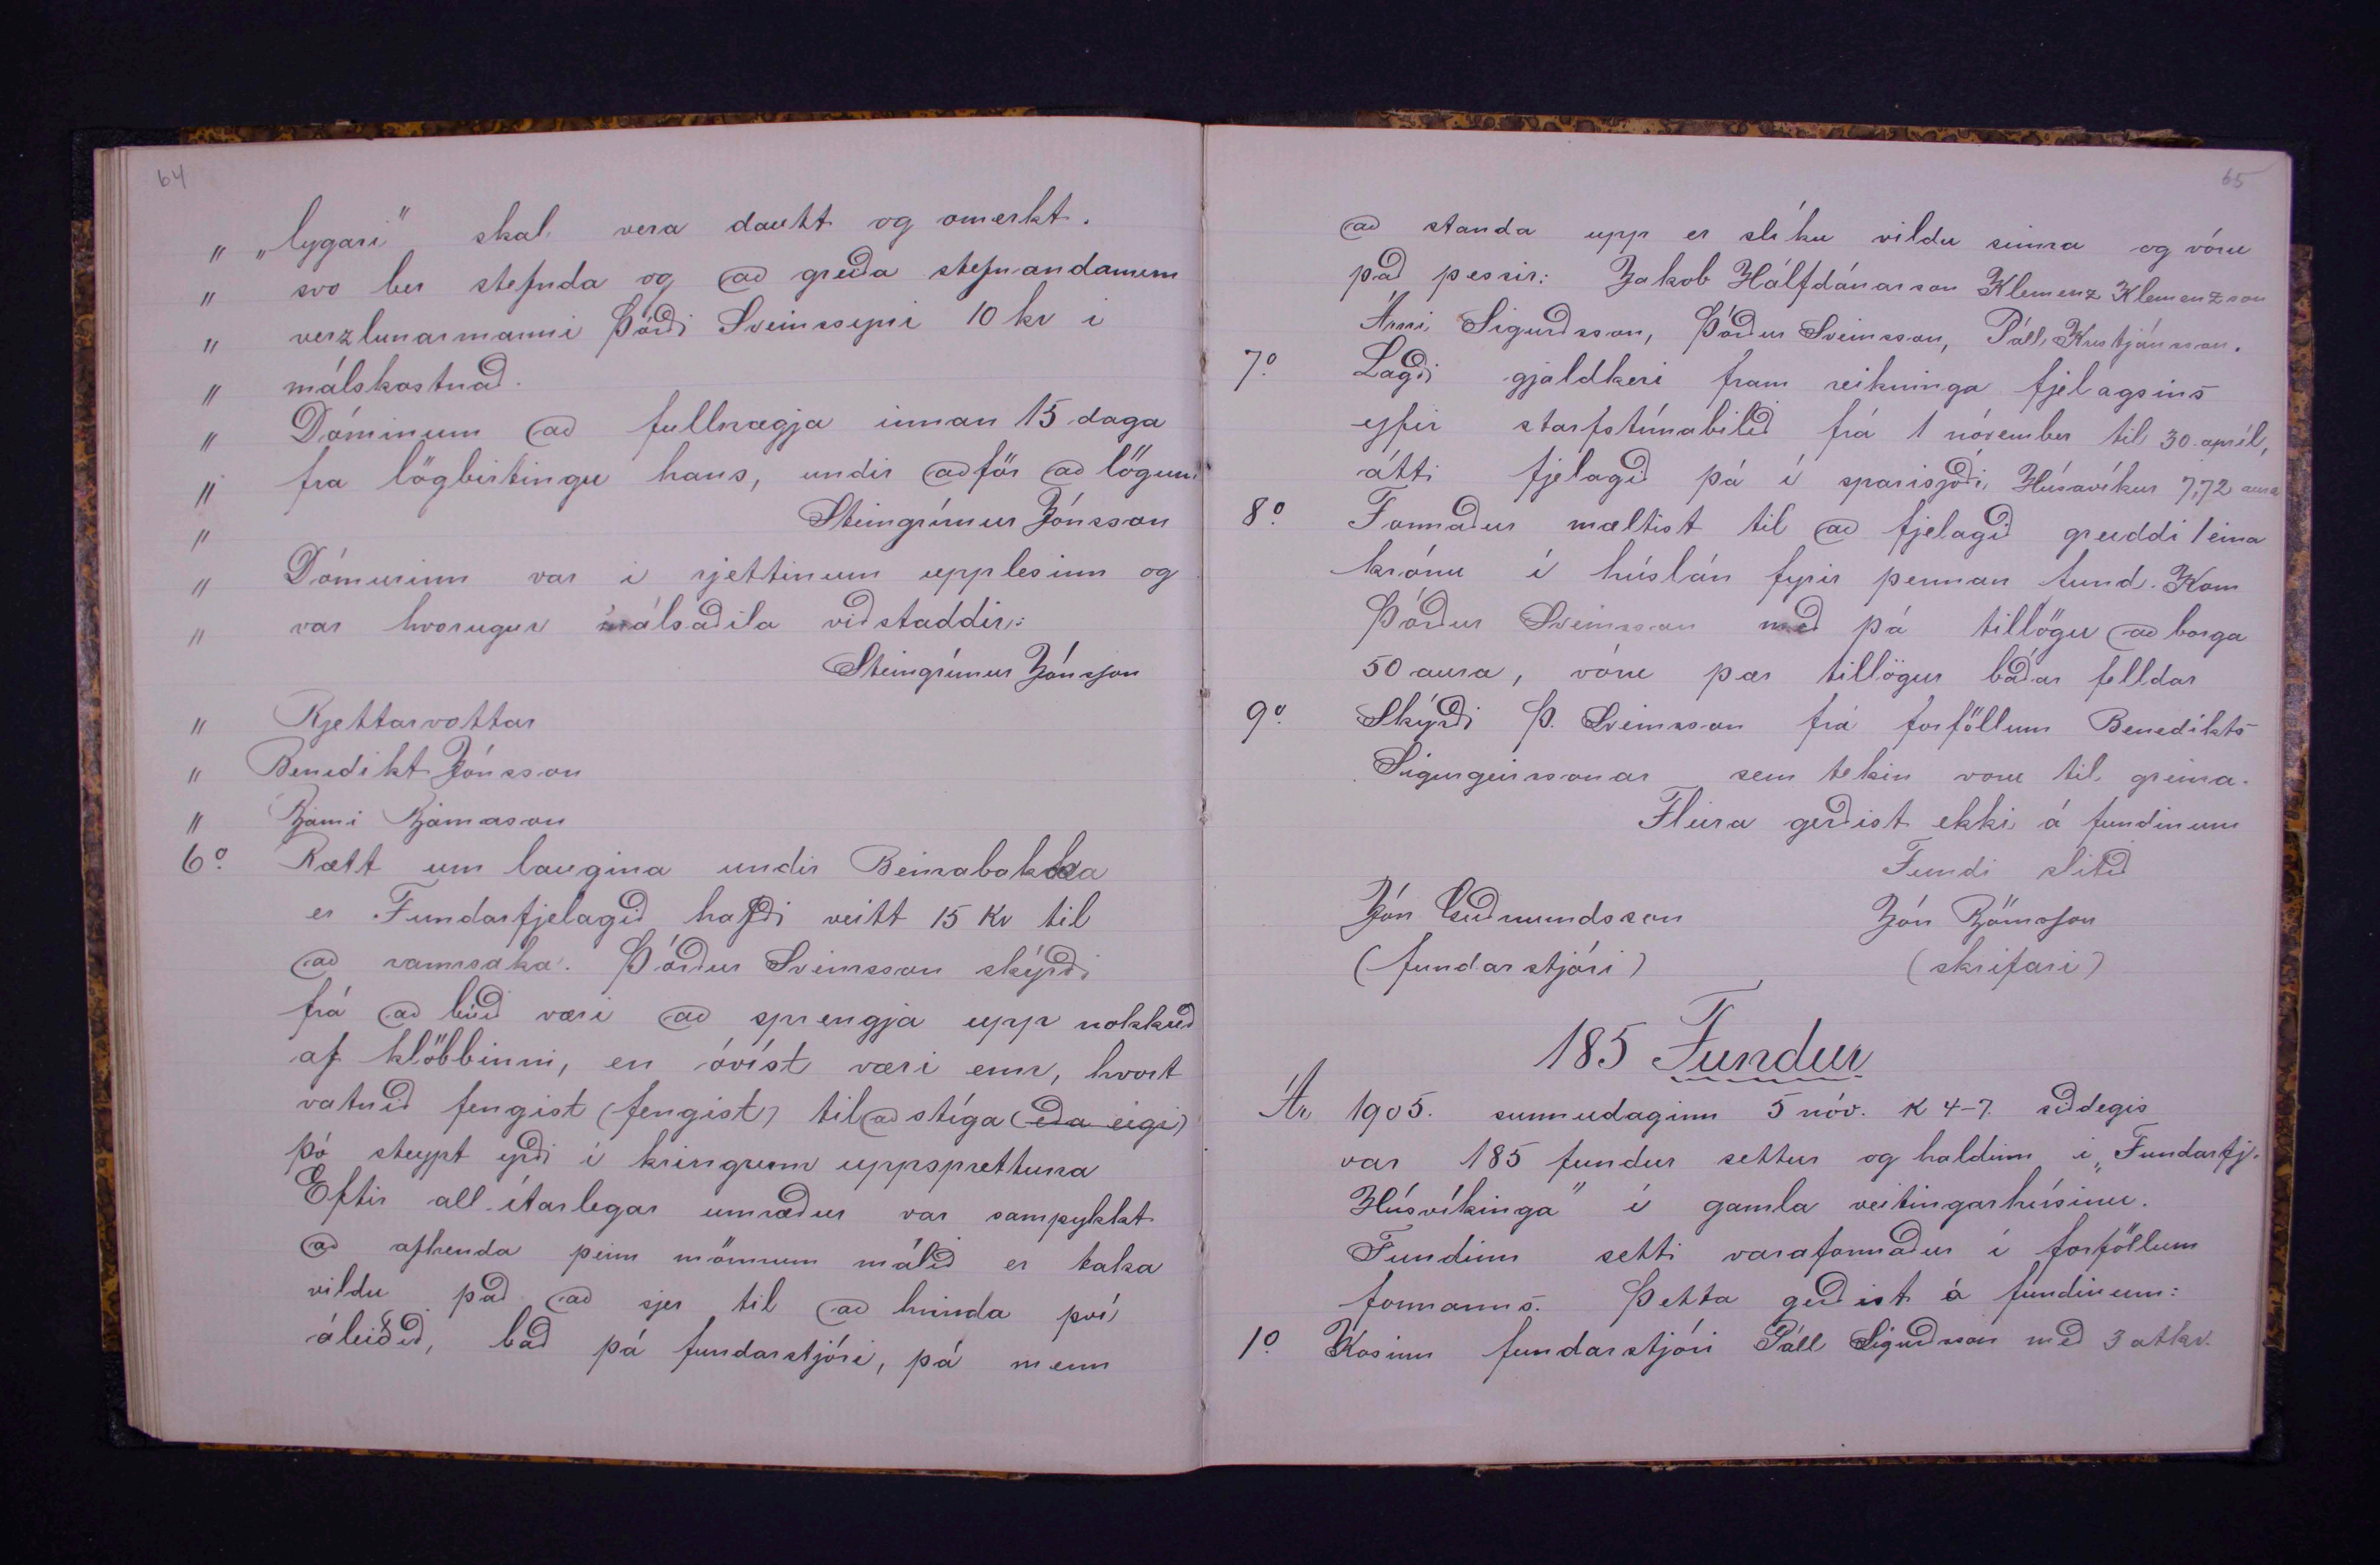 64
" „lygari" skal vera dautt og omerkt.
" svo ber stefnda og að greiða stefnandanum
" verzlunarmanni Þórði Sveinssyni 10 kr í
" málskostnað.
" Dóminum að fullnægja innan 15 daga
" fra lögbirtingu hans, undir aðför að lögum
" Steingrímur Jónsson
" Dómurinn var i rjettinum upplesinn og
" var hvorugur málsaðila viðstaddir:
Steingrímur Jónsson
" Rjettarvottar
" Benedikt Jónsson
" Bjarni Bjarnason
6o. Rætt um laugina undir Beinabakka
er Fundarfjelagið hafði veitt 15 Kr til
að rannsaka. Þórður Sveinsson skýrði
frá að búið væri að sprengja upp nokkuð
af klöbbinni, en óvíst væri enn, hvort
vatnið fengist (fengist) til að stíga (eða eigi)
þó steypt yrði í kringum uppsprettuna
Eftir all-ítarlegar umræður var samþykkt
að afhenda þeim mönnum málið er taka
vildu það að sjer til að hrinda því
áleiðið, bað þá fundarstjóri, þá menn
65
að standa upp er slíku vildu sinna og vóru
það þessir: Jakob Hálfdánarson Klemenz Klemenzson
Árni Sigurðsson, Þórður Sveinsson, Páll Kristjánsson.
7o. Lagði gjaldkeri fram reikninga fjelagsins
yfir starfstímabilið frá 1 nóvember til 30. apríl,
átti fjelagið þá í sparisjóði Húsavíkur 7,72 aura
8o. Formaður mæltist til að fjelagið greiddi 1 eina
krónu í húslán fyrir þennan fund. Kom
Þórður Sveinsson með þá tillögu að borga
50 aura, vóru þær tillögur báðar felldar
9o. Skýrði Þ. Sveinsson frá forföllum Benedikts
Sigurgeirssonar sem tekin voru til greina.
Fleira gerðist ekki á fundinum
Fundi slitið
Jón Guðmundsson Jón
(fundarstjóri) (skrifari)
185 Fundur
Ár 1905. sunnudaginn 5 nóv. K 4-7. síðdegis
var 185 fundur settur og haldinn í „Fundarfj.
Húsvíkinga" í gamla veitingarhúsinu.
Fundinn setti varaformaður í forföllum
formanns. Þetta gerðist á fundinum:
1o. Kosinn fundarstjóri Páll Sigurðsson með 3 atkv.